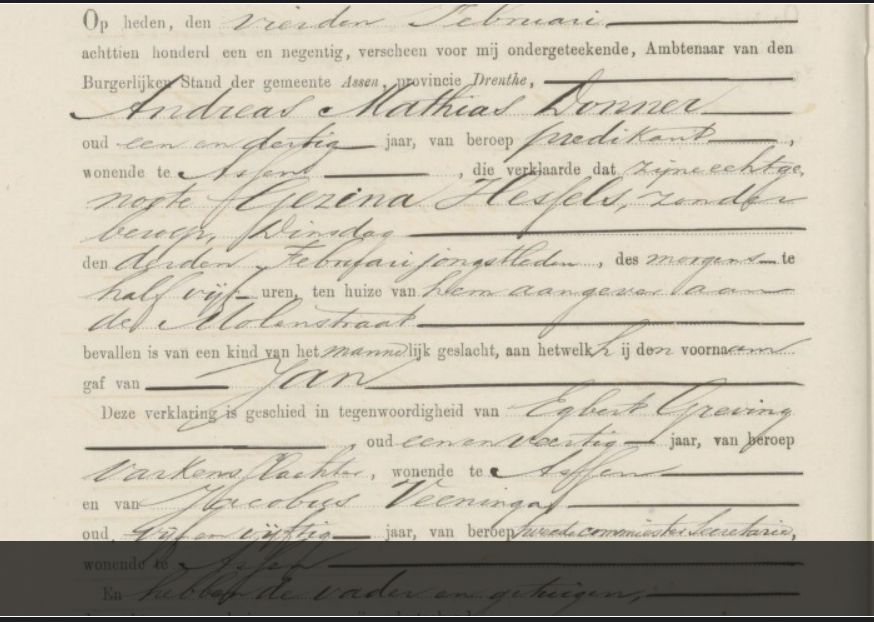 Op heden, den vierden Februari
achttien honderd een en negentig, verscheen voor mij ondergeteekende, Ambtenaar van den
Burgerlijken Stand der gemeente Assen, provincie Drenthe,
Andreas Mathias Donner
oud een en dertig jaar, van beroep predikant,
wonende te Assen, die verklaarde dat zijne echtge,
noote Gezina Hessels, zonder
beroep, Dinsdag
den derden Februari jongstleden, des morgens te
half vijf uren, ten huize van hem aangever aan
de Molenstraat
bevallen is van een kind van het mannelijk geslacht, aan hetwelk hij den voornaam
gaf van Jan
Deze verklaring is geschied in tegenwoordigheid van Egbert Greving
, oud een en veertig jaar, van beroep
varkensslachter, wonende te Assen
en van Jacobus Veeninga
oud vijf en vijftig jaar, van beroep tweede commies ter Secretarie,
wonende te Assen
En hebben de vader en getuigen,